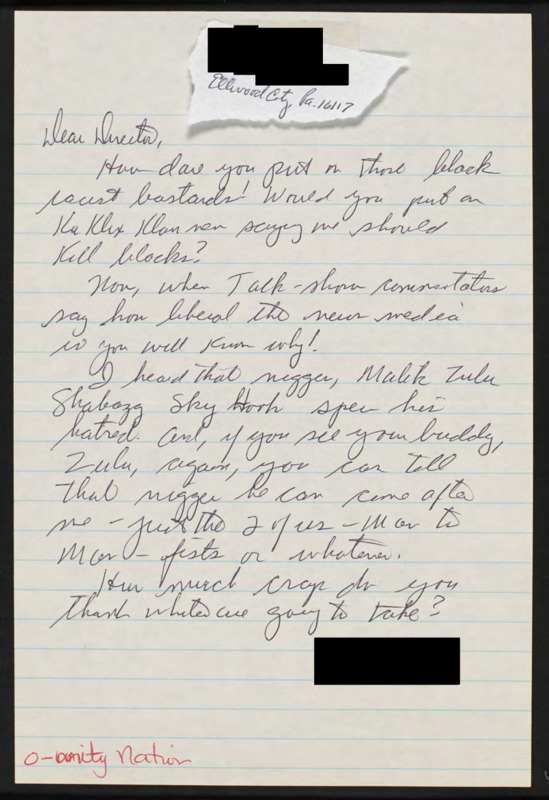 Ellwood City, Pa. 16117
Dear Director,
How dare you put on those black
racist bastards! Would you put on
Ku Klix Klan men saying we should
kill blacks?
Now, when Talk-show commentators
say how liberal the news media
is you will know why!
I heard that nigger, Malik Zulu
Shabazz Sky Hook spew his
hatred. And, if you see your buddy,
Zulu, again, you can tell
that nigger he can come after
me - just the 2 of us - Man to
Man - fists or whatever.
How much crap do you
think whites are going to take?
Nation